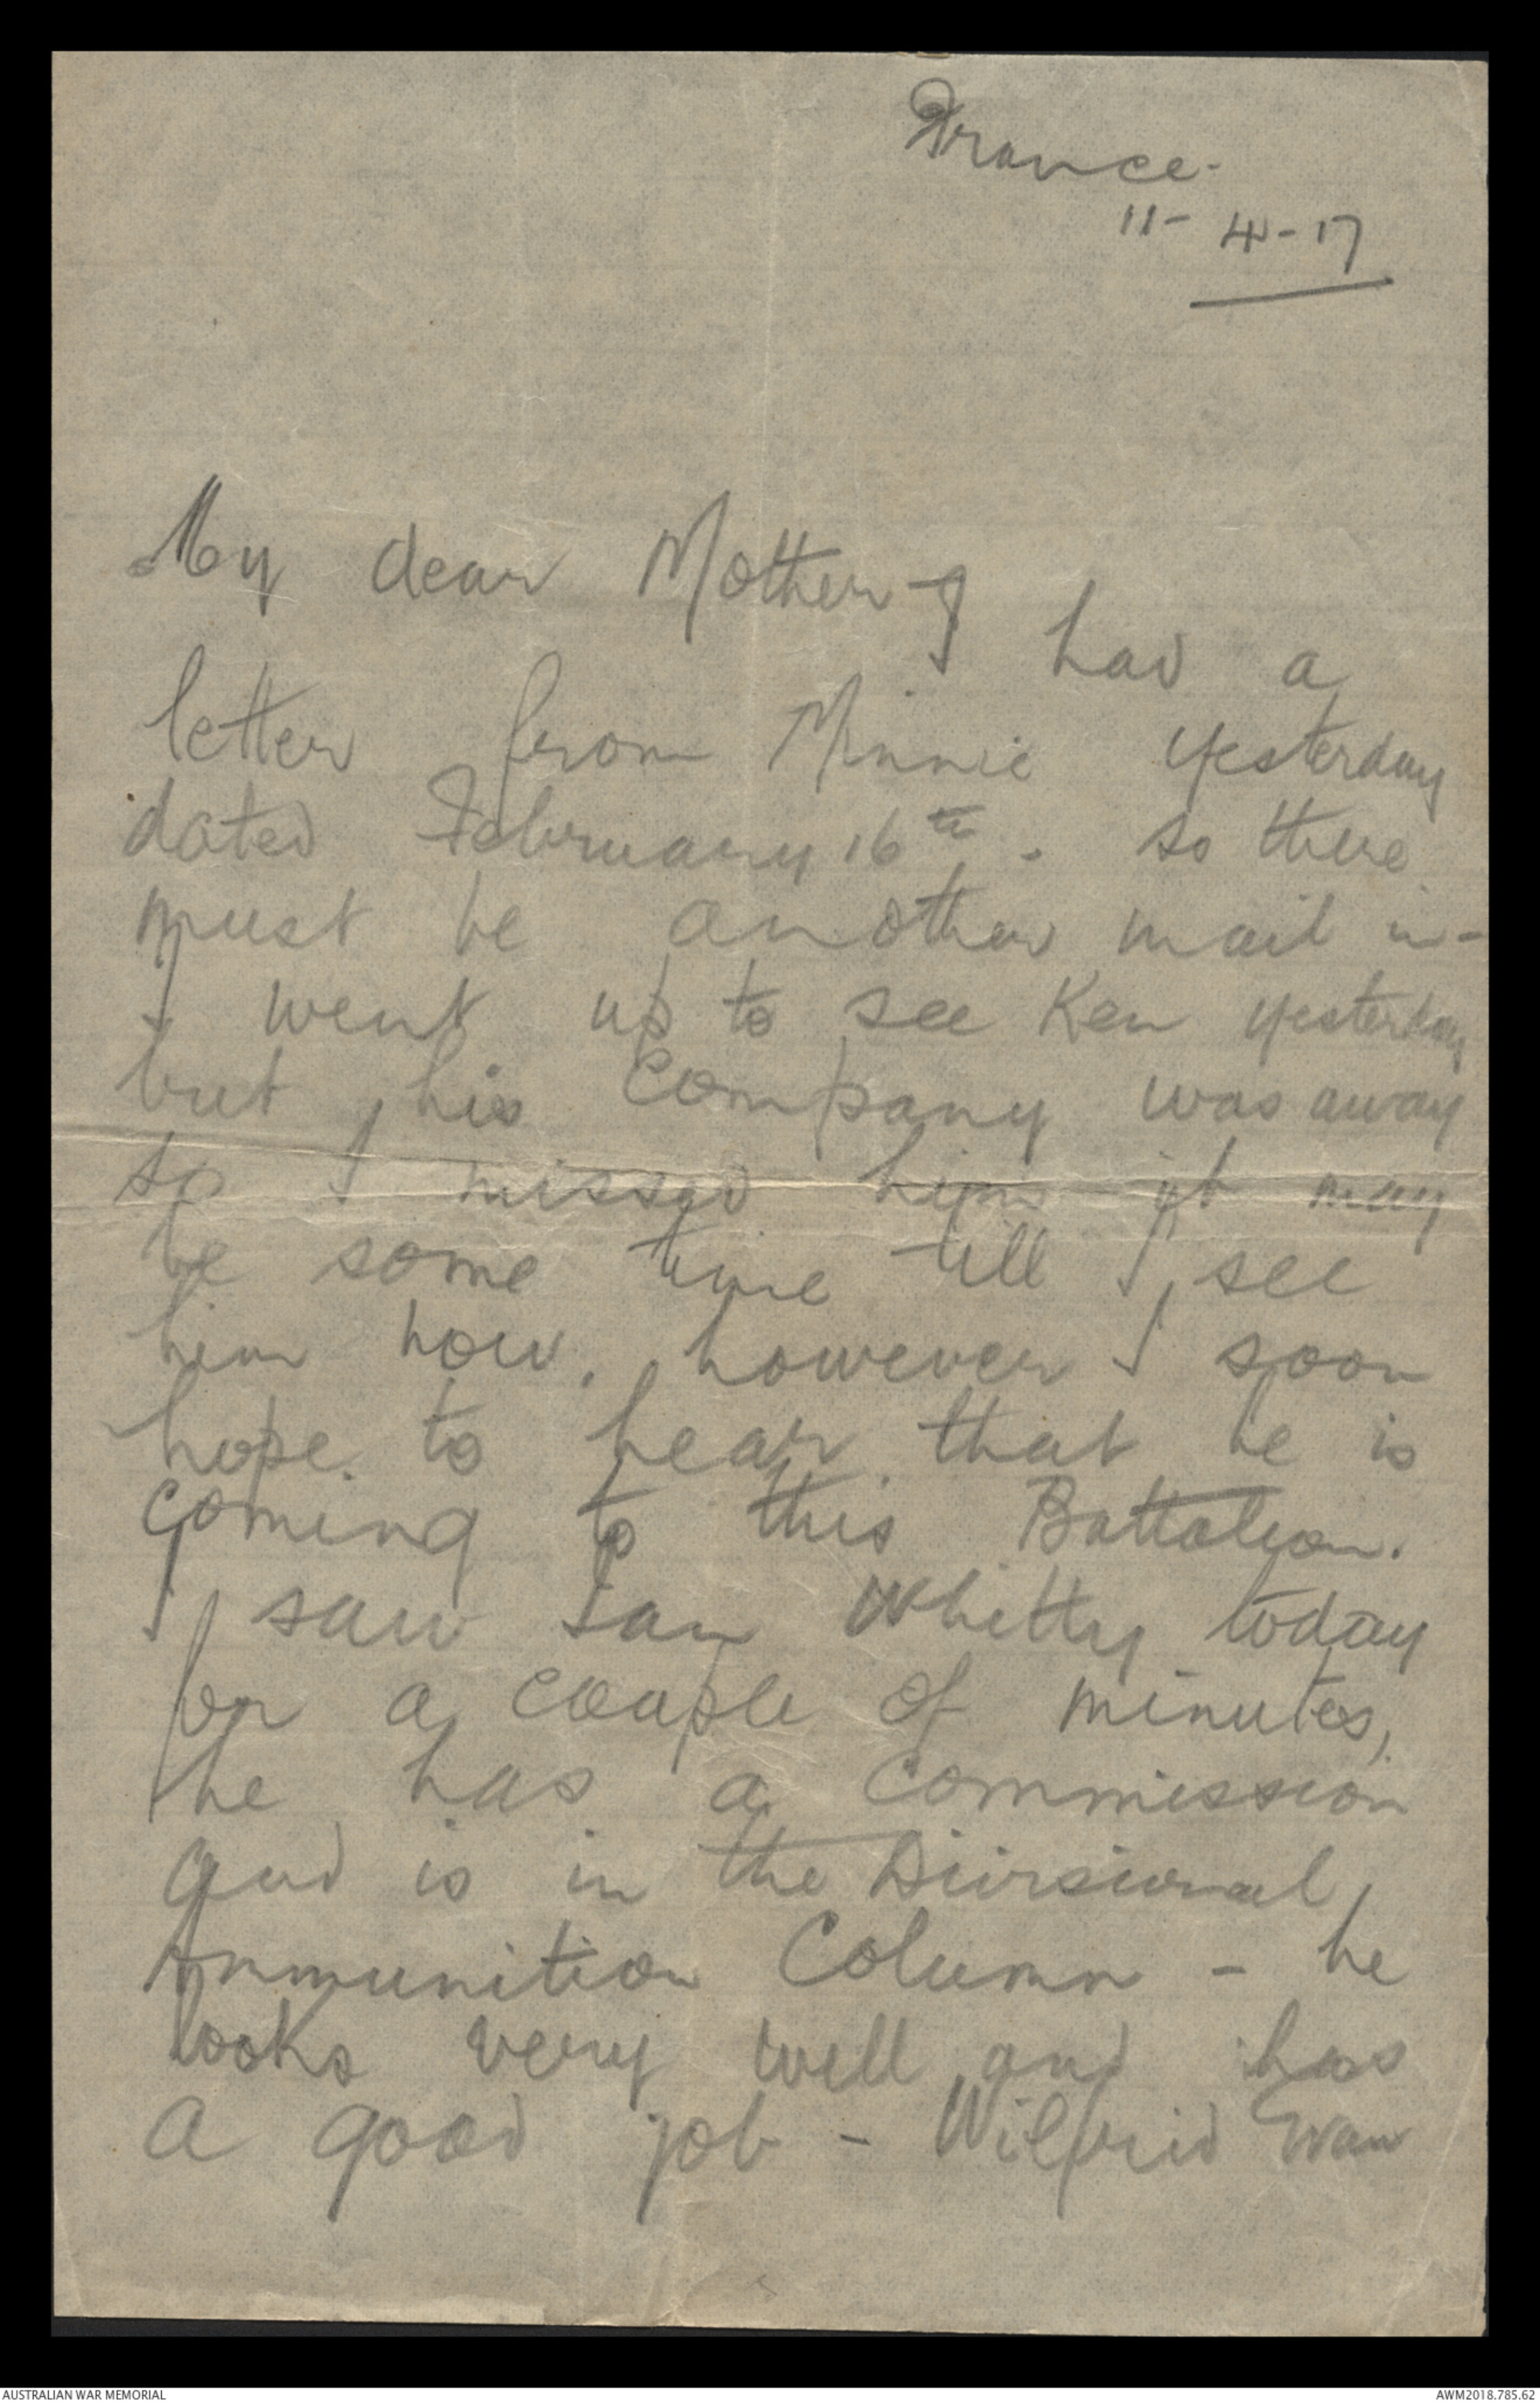 France.
11-4-17
My dear Mother - I had a
letter from Minnie yesterday
dated February 16th. so there
must be another mail in -
I went up to see Ken yesterday
but his Company was away
so I missed him it may
be some time till I see
him now. however I soon
hope to hear that he is
coming to this Battalion.
I saw Ian Whitty today
for a couple of minutes,
he has a Commission
and is in the Divisional
Ammunition Column - he
looks very well and has
a good job - Wilfrid Evan
AUSTRALIAN WAR MEMORIAL
AWM2018.785.62